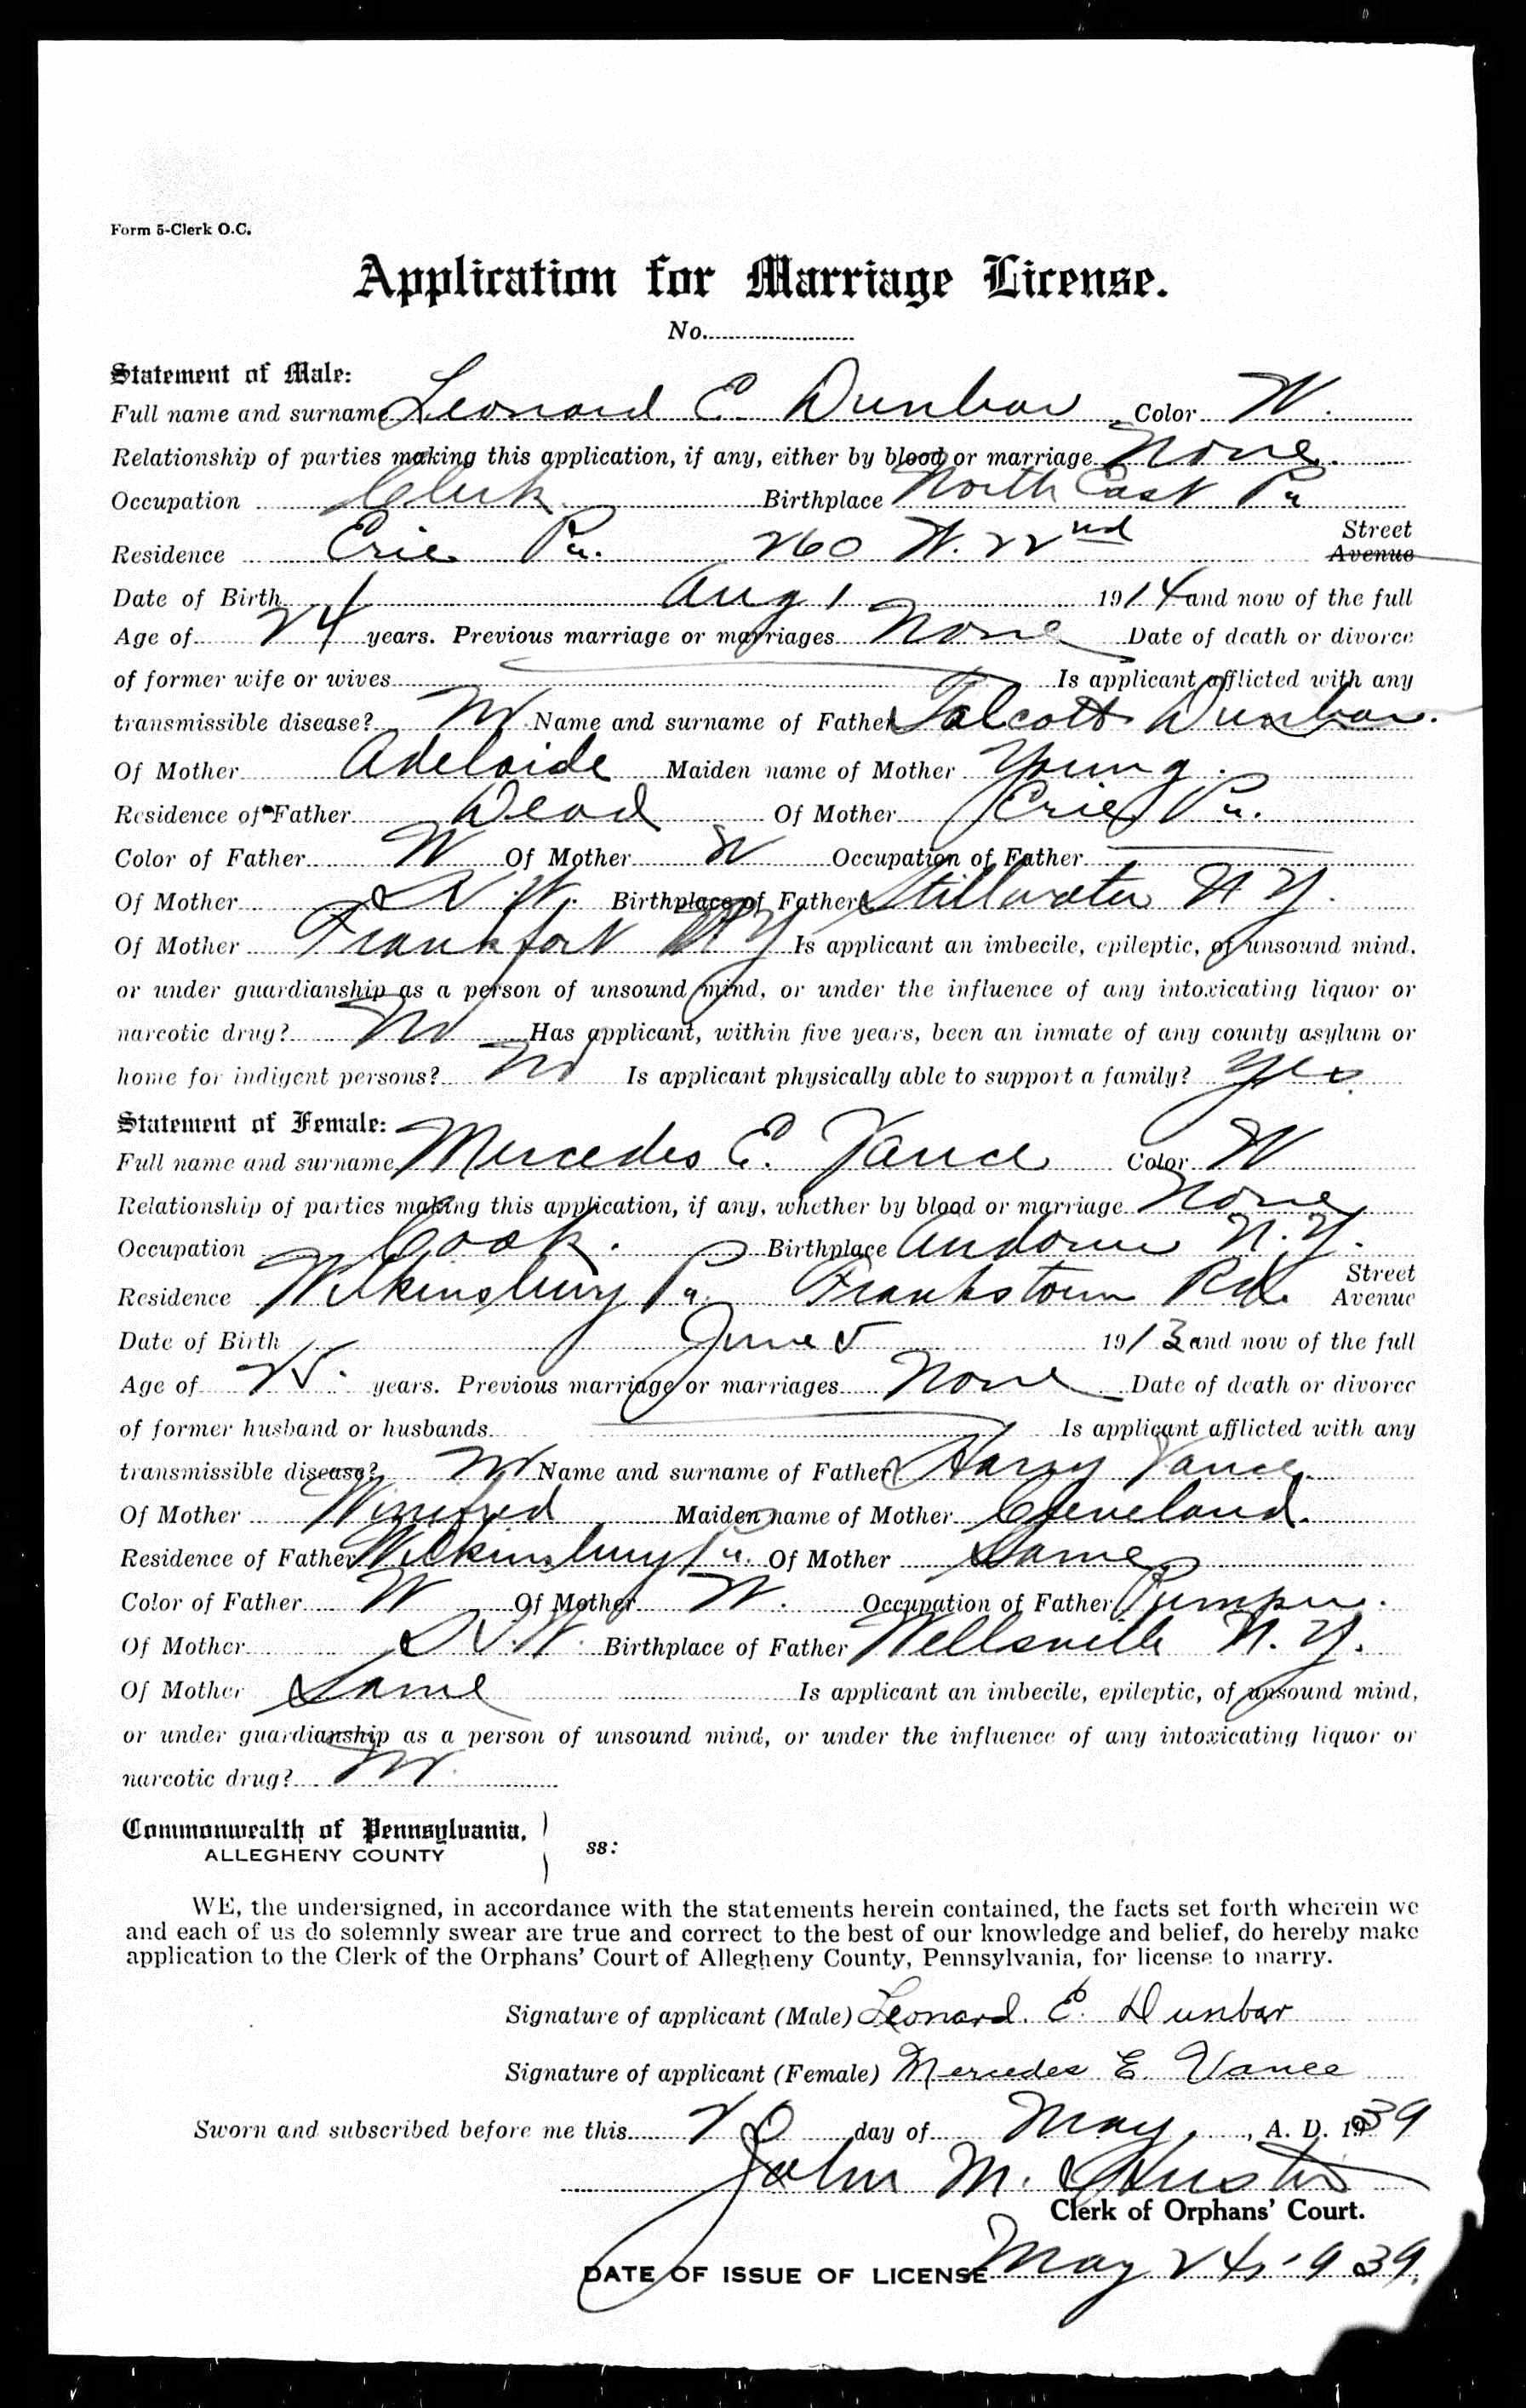 Form 5-Clerk O.C.
Application for Marriage License.
No.
Statement of Male:
Full name and surname Leonard E. Dunbar Color W.
Relationship of parties making this application, if any, either by blood or marriage None.
Occupation Clerk Birthplace North East Pa
Street
Residence Erie Pa. 260 W. 22nd Avenue
Date of Birth Aug 1 1914 and now of the full
Age of 24 years. Previous marriage or marriages None Date of death or divorce
of former wife or wives Is applicant afflicted with any
transmissible disease? No Name and surname of Father Talcott Dunbar.
Of Mother Adelaide Maiden name of Mother Young.
Residence of Father Dead Of Mother Erie Pa.
Color of Father W Of Mother W Occupation of Father
Of Mother W. Birthplace of Father Stillwater N.Y.
Of Mother Frankfort N Y Is applicant an imbecile, epileptic, of unsound mind,
or under guardianship as a person of unsound mind, or under the influence of any intoxicating liquor or
narcotic drug? No Has applicant, within five years, been an inmate of any county asylum or
home for indigent persons? No Is applicant physically able to support a family? Yes.
Statement of Female:
Full name and surname Mercedes E. Vance Color W
Relationship of parties making this application, if any, whether by blood or marriage None
Occupation Cook. Birthplace Andover N.Y.
Street
Residence Wilkinsburg Pa. Frankstown Rd. Avenue
Date of Birth June 5 1913 and now of the full
Age of 25. years. Previous marriage or marriages None Date of death or divorce
of former husband or husbands Is applicant afflicted with any
transmissible disease? No Name and surname of Father Harry Vance.
Of Mother Winifred Maiden name of Mother Cleveland.
Residence of Father Wilkinsburg Pa. Of Mother Same
Color of Father W Of Mother W. Occupation of Father Pumper.
Of Mother W. Birthplace of Father Wellsville N.Y.
Of Mother Same Is applicant an imbecile, epileptic, of unsound mind,
or under guardianship as a person of unsound mind, or under the influence of any intoxicating liquor or
narcotic drug? No.
Commonwealth of Pennsylvania,
ss:
ALLEGHENY COUNTY
WE, the undersigned, in accordance with the statements herein contained, the facts set forth wherein we
and each of us do solemnly swear are true and correct to the best of our knowledge and belief, do hereby make
application to the Clerk of the Orphans' Court of Allegheny County, Pennsylvania, for license to marry.
Signature of applicant (Male) Leonard. E. Dunbar
Signature of applicant (Female) Mercedes E. Vance
Sworn and subscribed before me this 20 day of May, A. D. 1939
John M. Huston
Clerk of Orphans' Court.
DATE OF ISSUE OF LICENSE May 24, 1939.